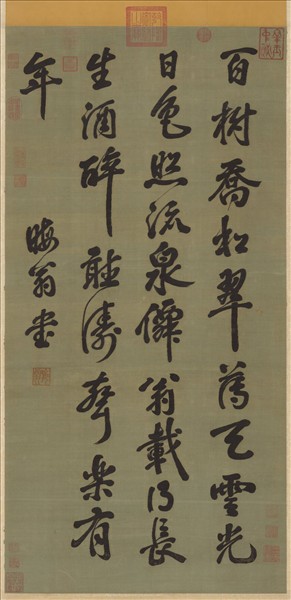 百樹喬松翠薄天雲光
日色照流泉僊翁載得長
生酒醉聽濤聲樂有
年
晦翁書